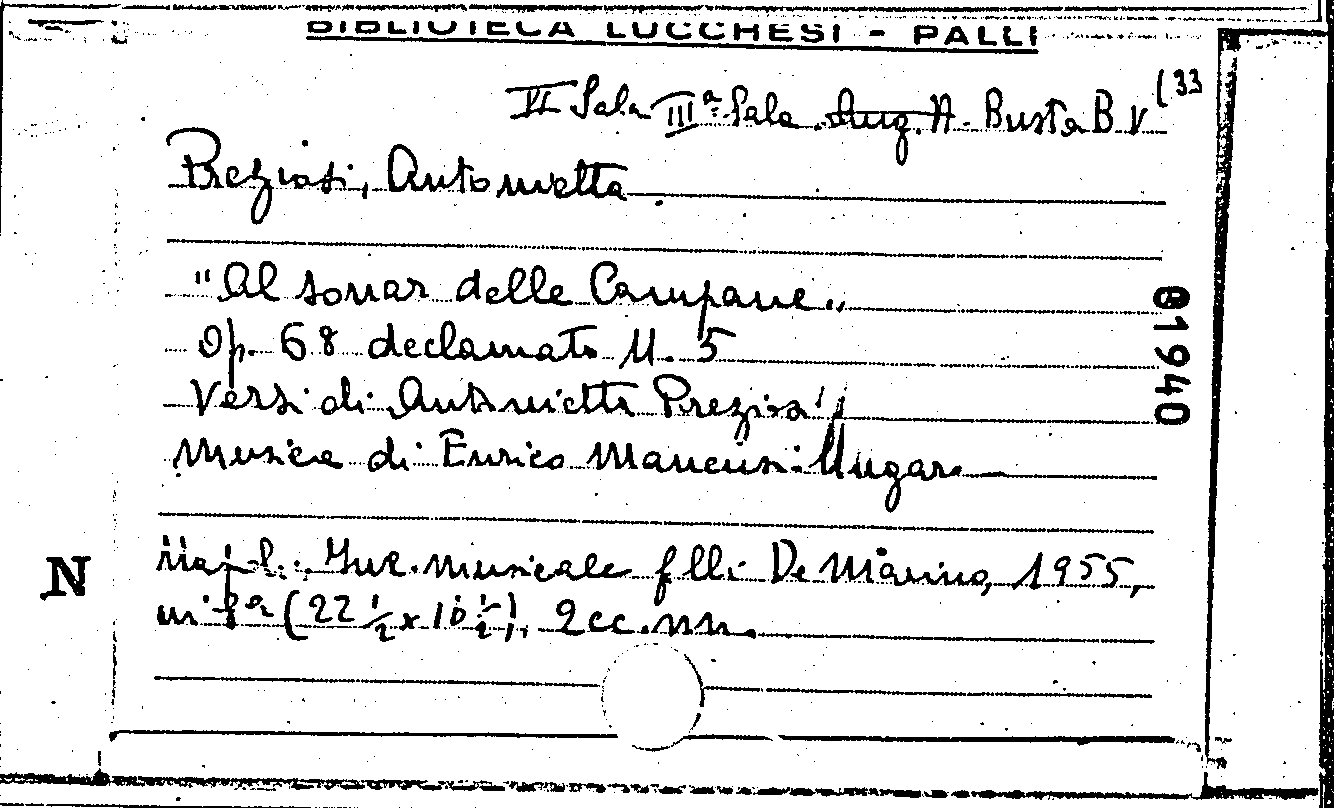 BIBLIOTECA LUCCHESI - PALLI
VI Sala IIIª Sala Aug. A. Busta B V (33
Preziosi, Antonietta.
"Al sonar delle Campane"
Op. 68 declamato N. 5
Versi di Antonietta Preziosi
Musica di Enrico Mancini
Napoli, Musicale f.lli De Marino, 1955,
in 8º (22 ½ x 16 ½), 2 cc. nn.
01940
N